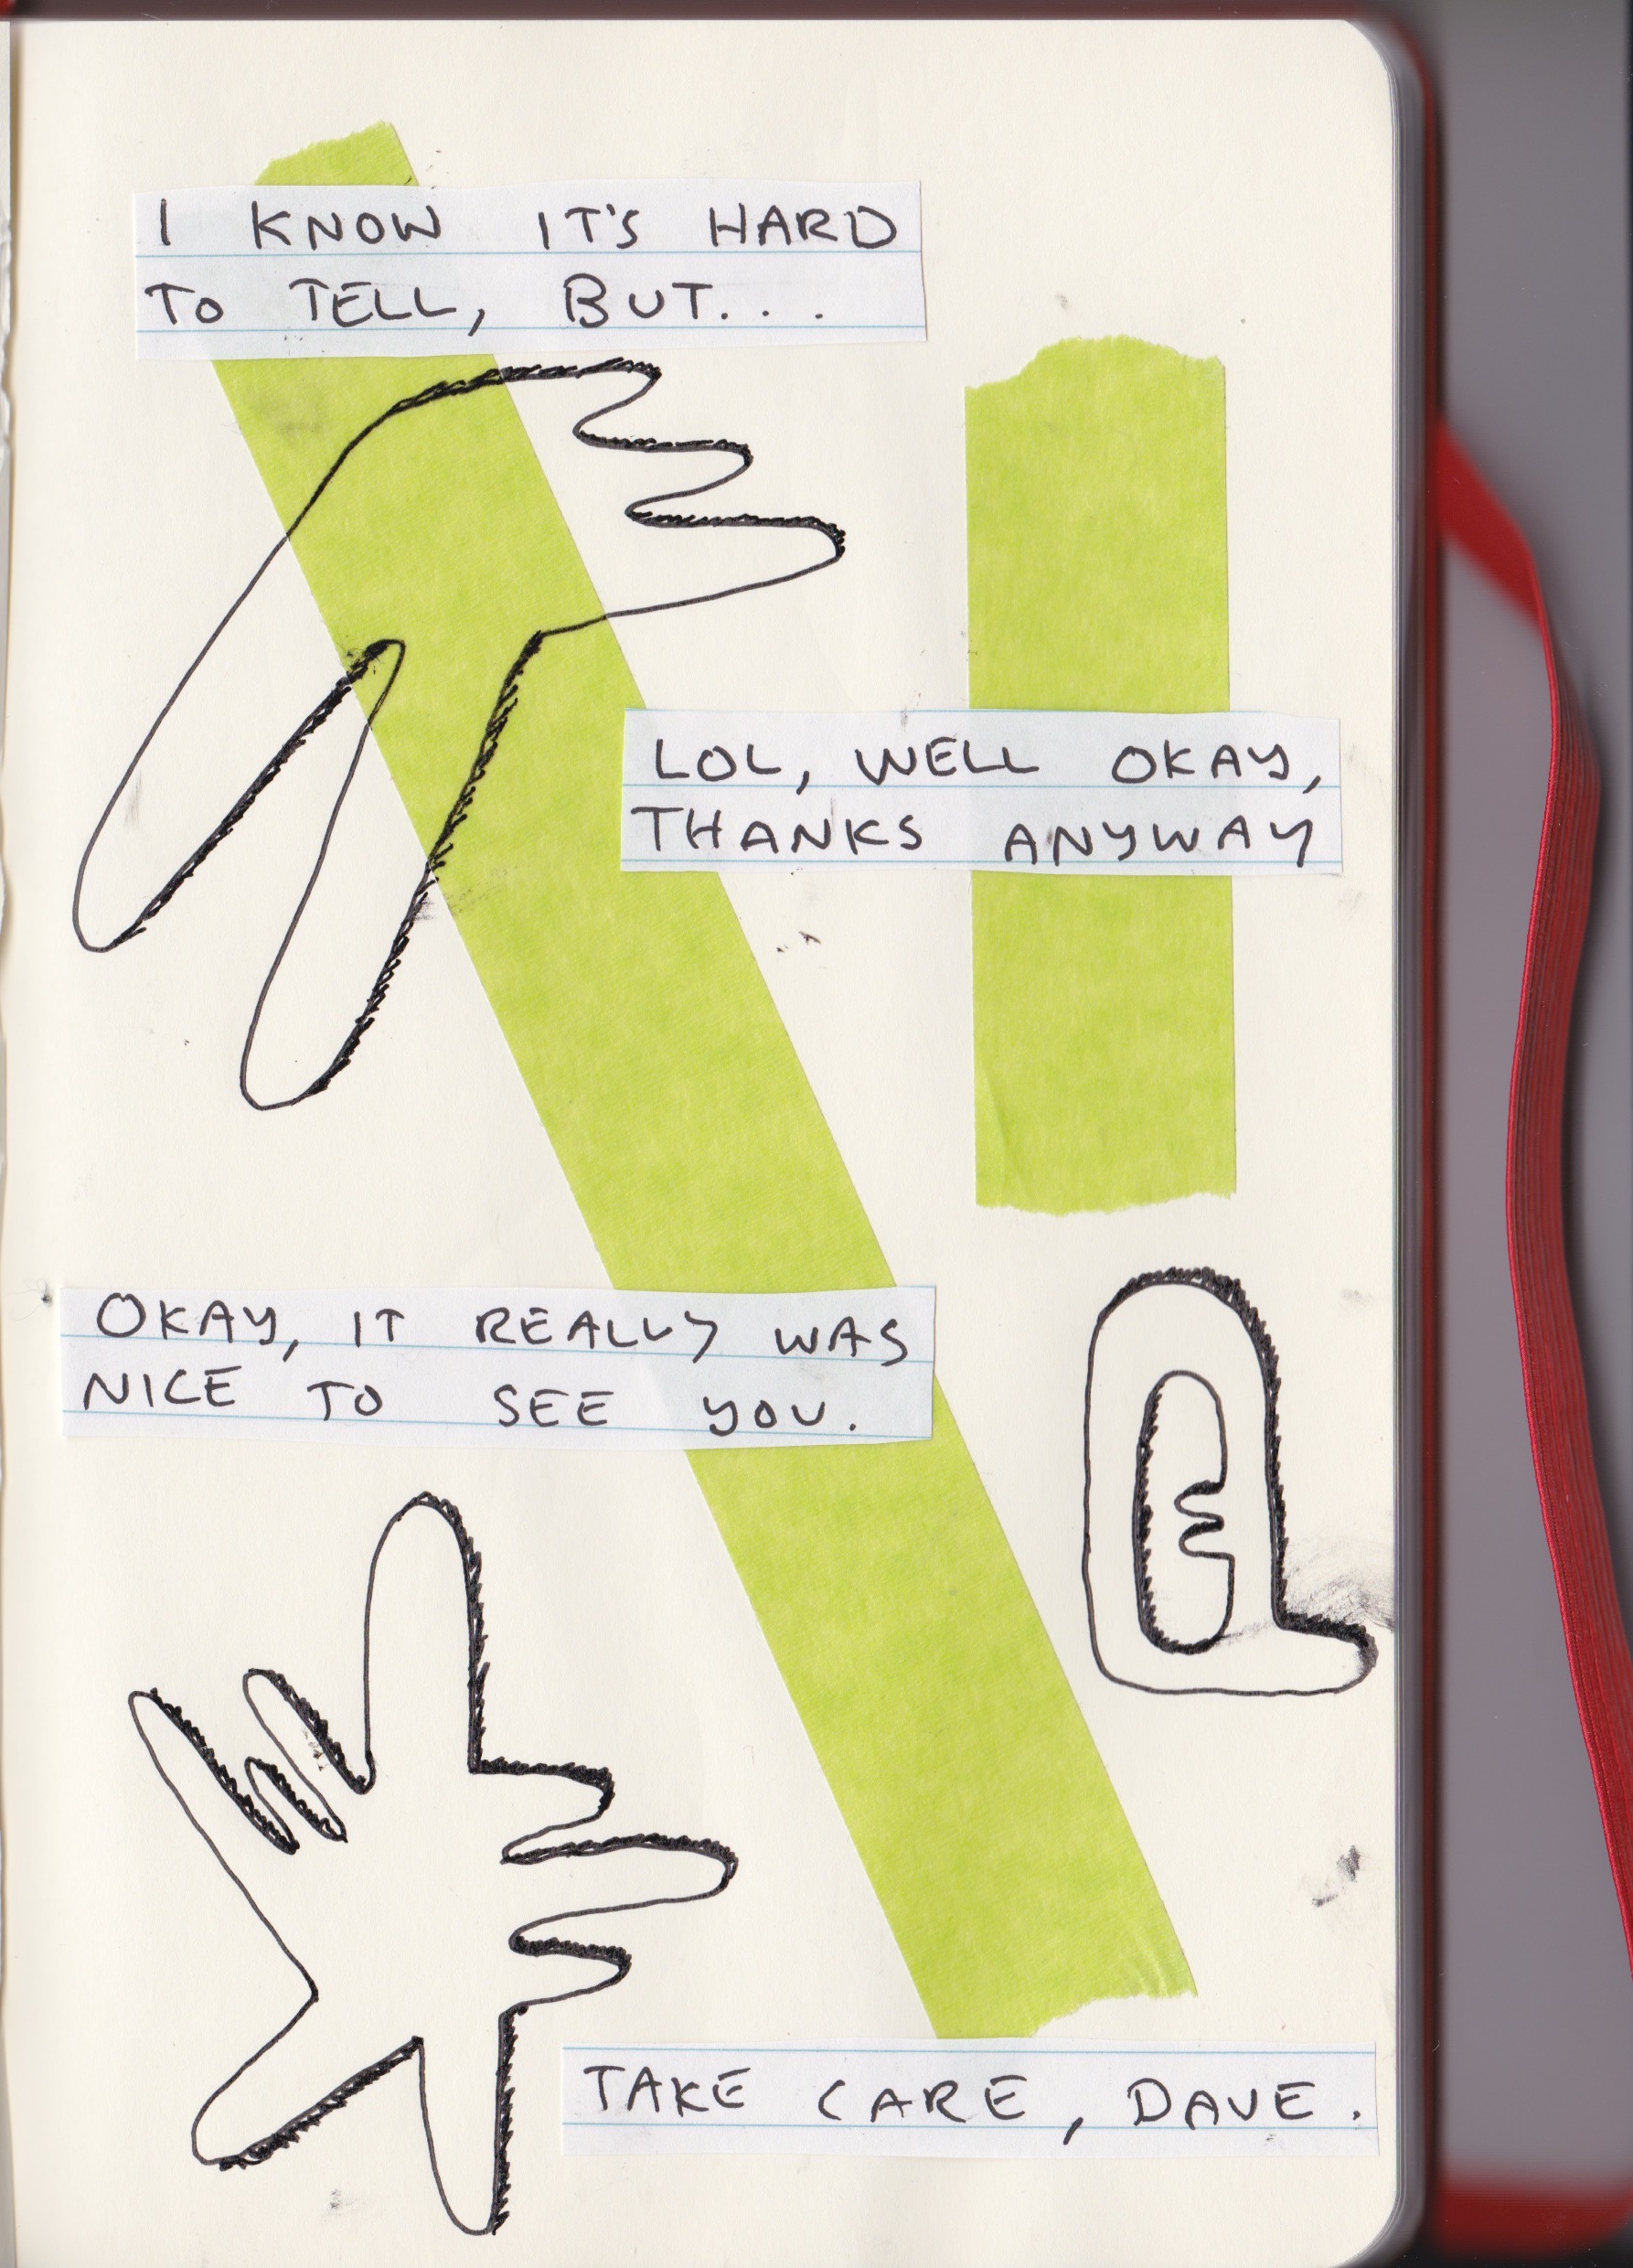 I KNOW IT'S HARD
TO TELL, BUT...
LOL, WELL OKAY,
THANKS ANYWAY
OKAY, IT REALLY WAS
NICE TO SEE YOU.
TAKE CARE, DAVE.